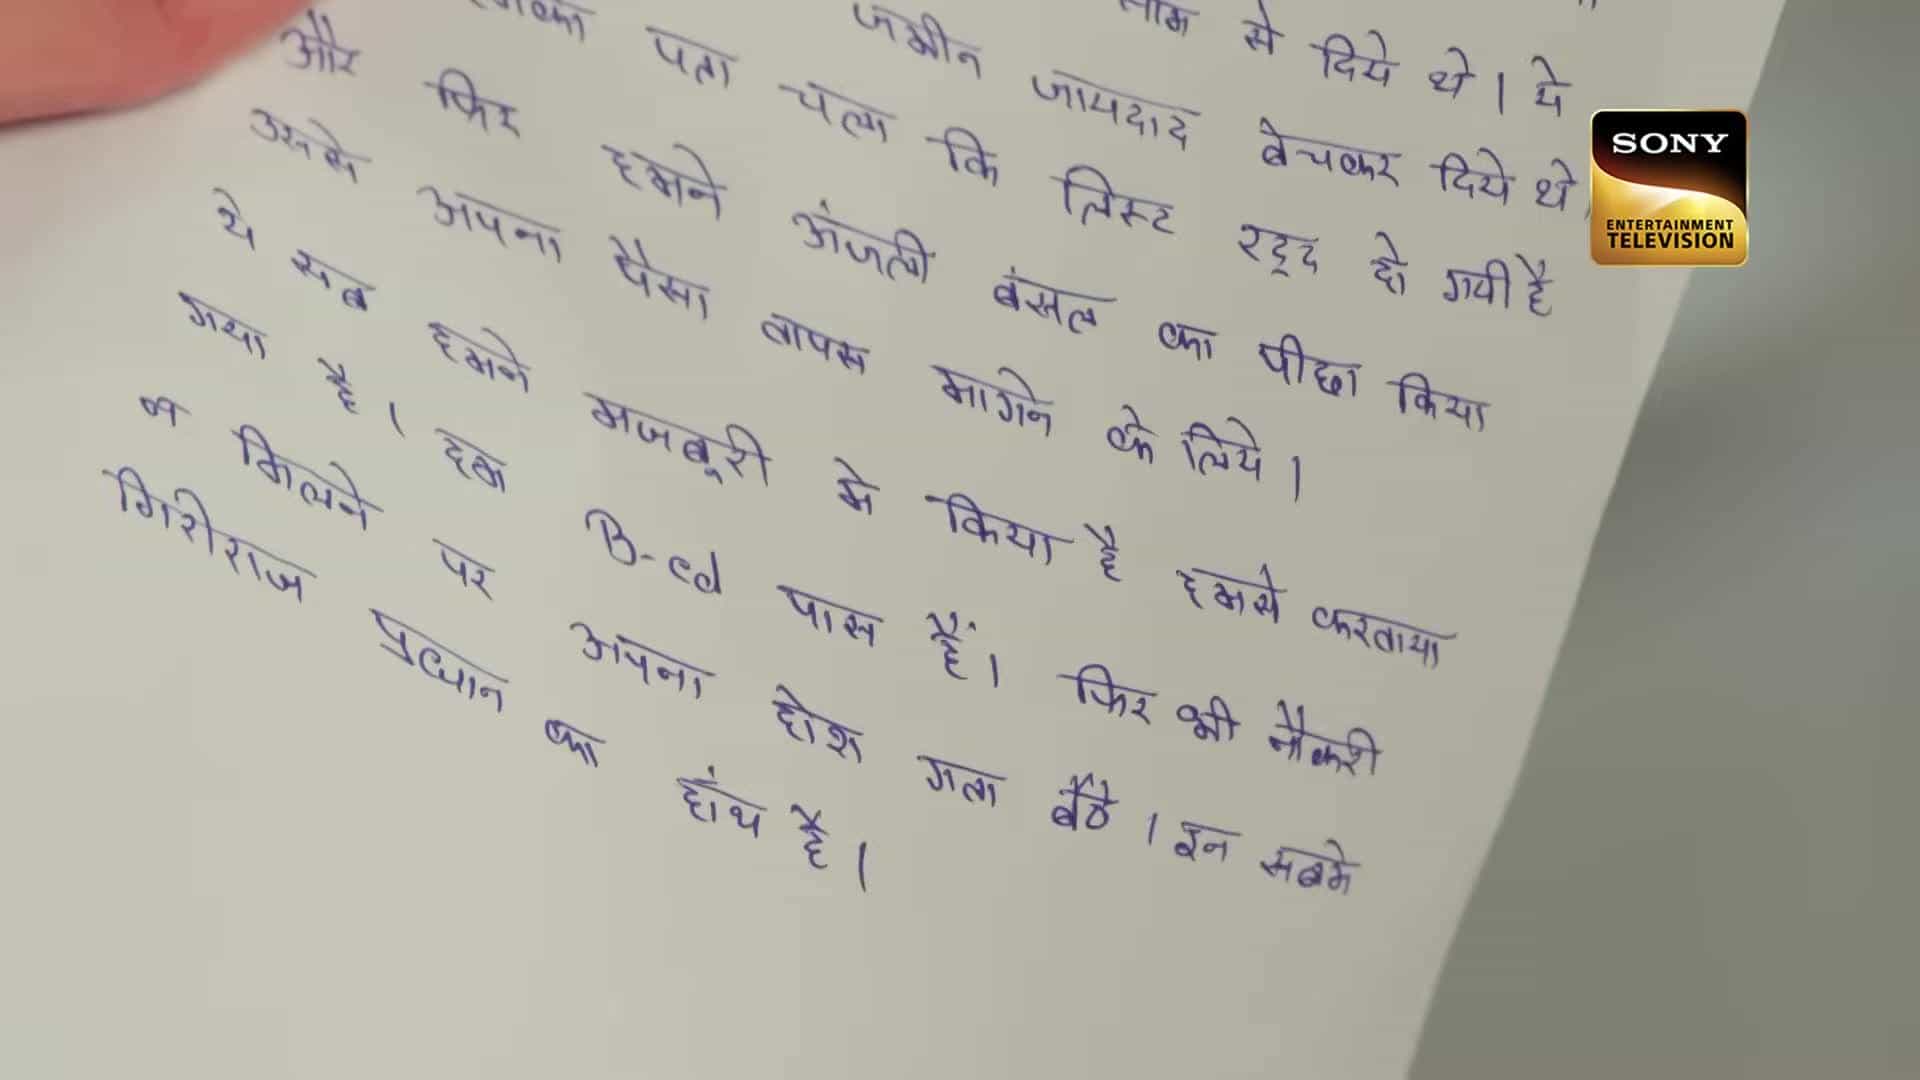 नाम से दिये थे। ये
जमीन जायदाद बेचकर दिये थे
पता चला कि लिस्ट रद्द हो गयी है
और फिर हमने अंजली बंसल का पीछा किया
उससे अपना पैसा वापस मागने के लिये।
ये सब हमने मजबूरी मे किया है हमसे करवाया
गया है। हम B-ed पास हैं। फिर भी नौकरी
न मिलने पर अपना होश गवा बैठे। इन सबमे
गिरीराज प्रधान का हांथ है।
SONY
ENTERTAINMENT
TELEVISION